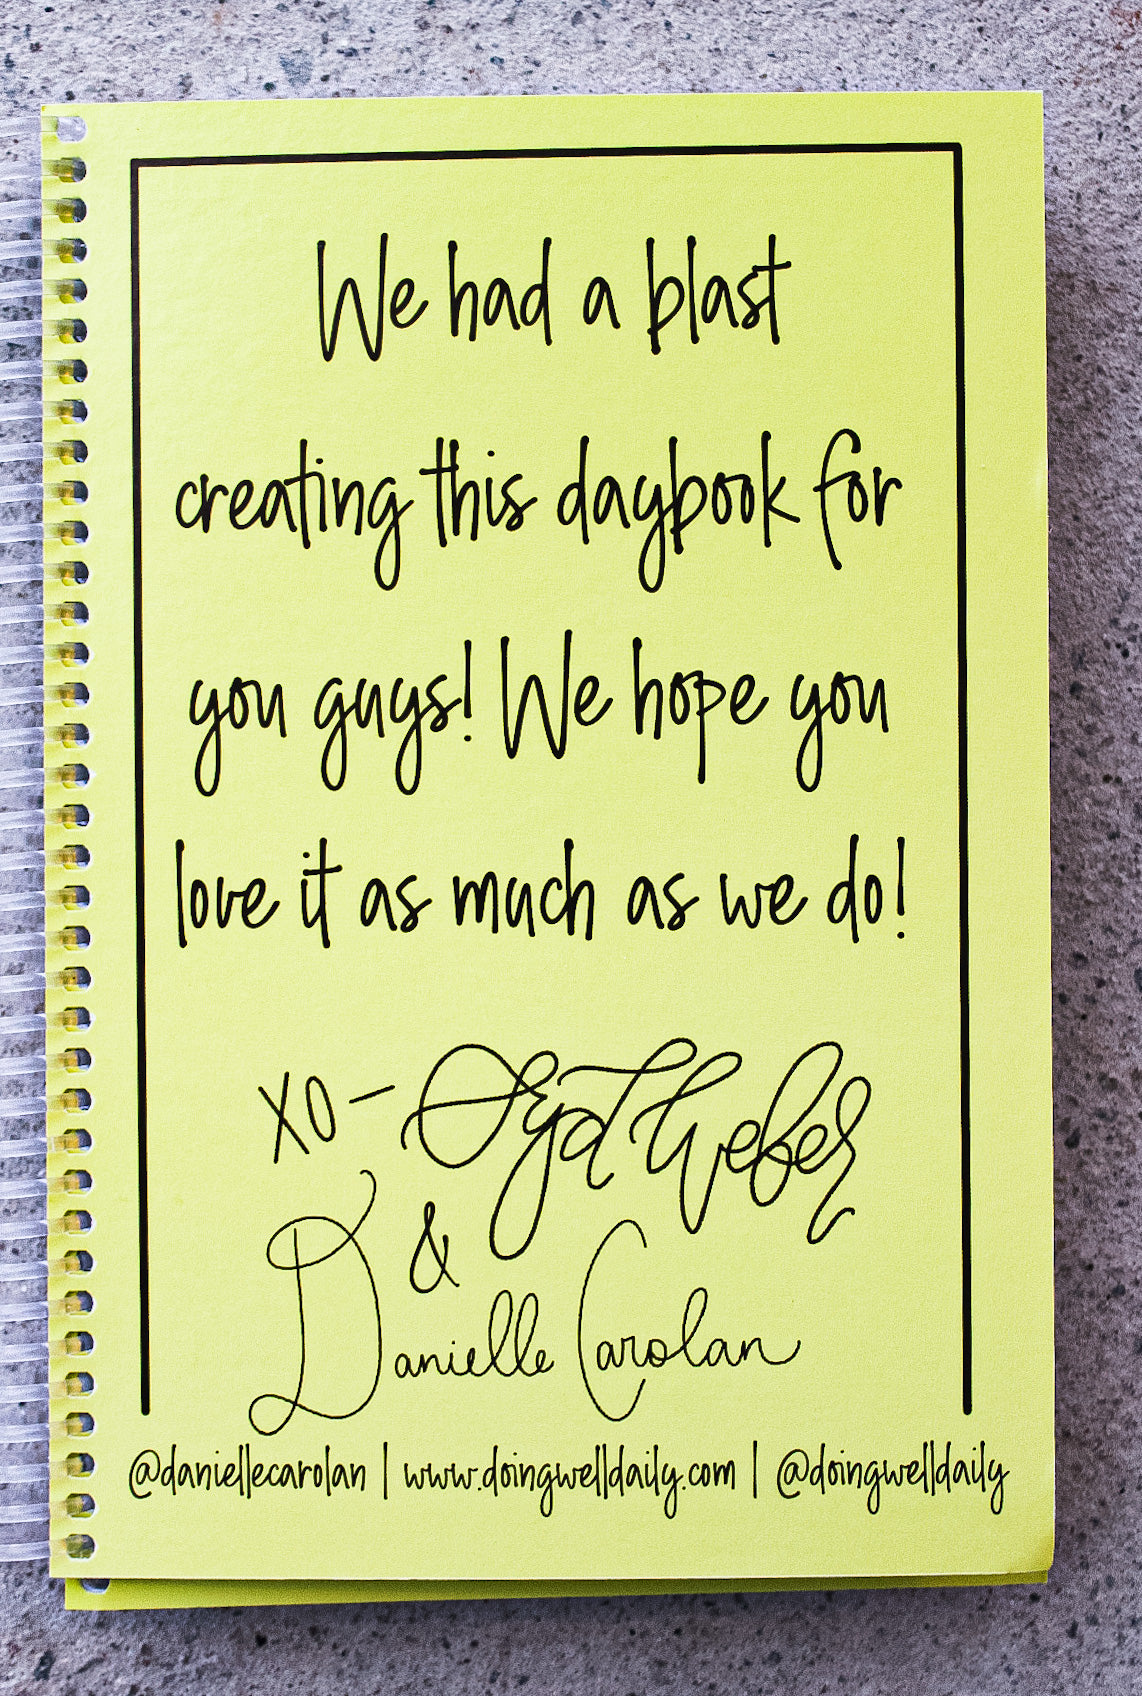 We had a blast
creating this daybook for
you guys! We hope you
love it as much as we do!
XO- Syd Weber
&
Danielle Carolan
@daniellecarolan | www.doingwelldaily.com | @doingwelldaily